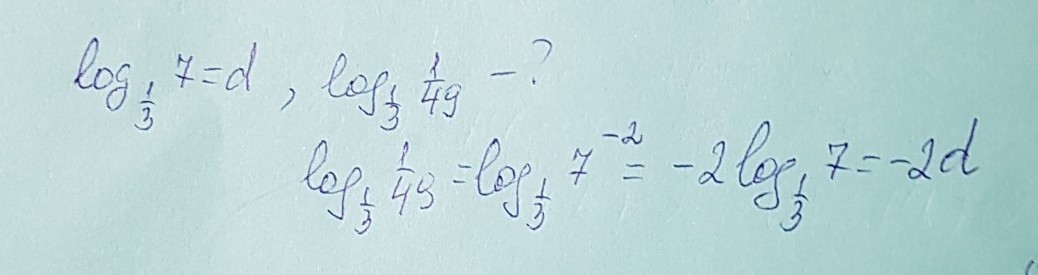 log_{1/3} 7 = d, log_{1/3} 1/49 - ?
log_{1/3} 1/49 = log_{1/3} 7^{-2} = -2 log_{1/3} 7 = -2d